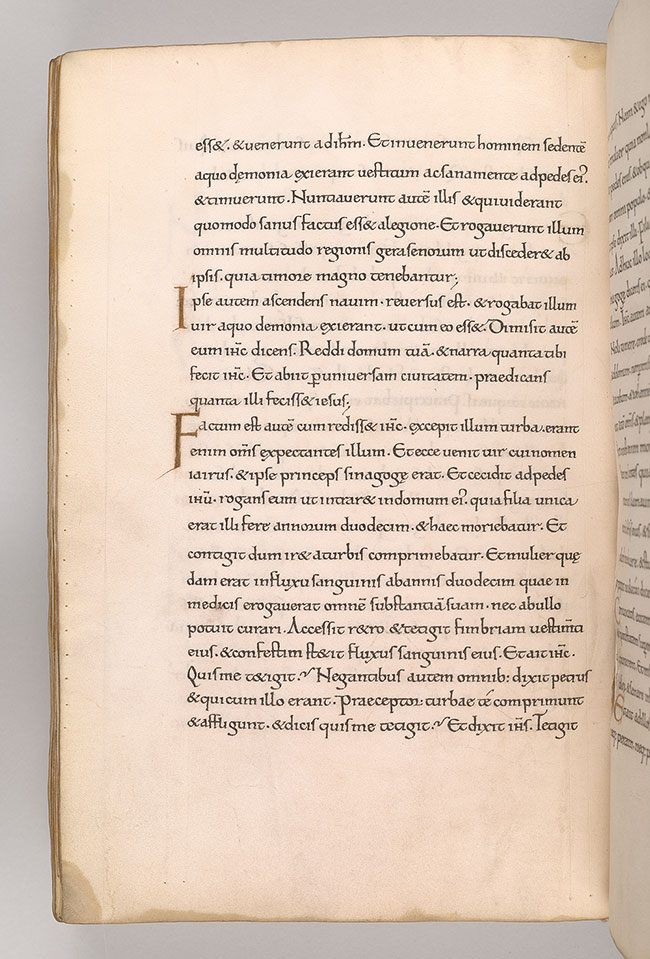 ess&. & uenerunt ad ihm̅. Et inuenerunt hominem sedentē
a quo demonia exierant uestitum ac sana mente ad pedes ei'.
& timuerunt. Nuntiauerunt autē illis & qui uiderant
quomodo sanus factus ess& a legione. Et rogauerunt illum
omnis multitudo regionis gerasenorum ut disceder& ab
ipsis. quia timore magno tenebantur;
Ipse autem ascendens nauim. reuersus est. & rogabat illum
uir a quo demonia exierant. ut cum eo ess&. Dimisit autē
eum ihc̅ dicens. Reddi domum tuā. & narra quanta tibi
fecit ihc̅. Et abiit ꝑ uniuersam ciuitatem. praedicans
quanta illi feciss& iesus;
Factum est autē cum rediss& ihc̅. excepit illum turba. erant
enim om̅s expectantes illum. Et ecce uenit uir cui nomen
iairus. & ipse princeps sinagogę erat. Et cecidit ad pedes
ihu̅. rogans eum ut intrar& in domum ei'. quia filia unica
erat illi fere annorum duodecim. & haec moriebatur. Et
contigit dum ir& a turbis comprimebatur. Et mulier quę
dam erat in fluxu sanguinis ab annis duodecim quae in
medicis erogauerat omnē substantiā suam. nec ab ullo
potuit curari. Accessit r&ro. & tetigit fimbriam uestim̅ti
eius. & confestim st&it fluxus sanguinis eius. Et ait ihc̅.
Quis me t&igit? Negantibus autem omnib: dixit petrus
& qui cum illo erant. Praeceptor turbae tē comprimunt
& affligunt. & dicis quis me tetigit? Et dixit ihs̅. Tetigit